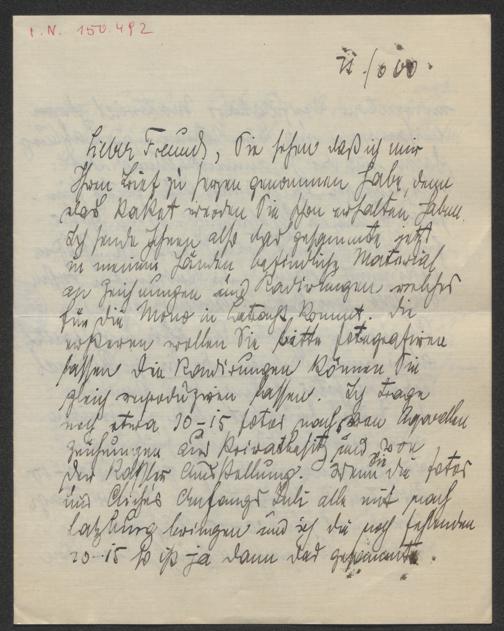 I.N. 150.492
Lieber Freund, Sie sehen daß ich mir
Ihren Brief zu Herzen genommen habe, denn
das Paket werden Sie schon erhalten haben.
Ich sende Ihnen also das gesammte jetzt
in meinen Händen befindliche Material
an Zeichnungen und Radirungen welches
für die Mono in Betracht kommt. Die
ersteren wollen Sie bitte fotografiren
lassen die Radirungen können Sie
gleich reproduziren lassen. Ich trage
noch etwa 10-15 Fotos nach von Aquarellen
Zeichnungen aus Privatbesitz und von
der Kasseler Ausstellung. Wenn Sie die Fotos
und Clichés Anfangs Juli alle mit nach
Salzburg bringen und ich die noch fehlenden
10-15 so ist ja dann das gesammte.